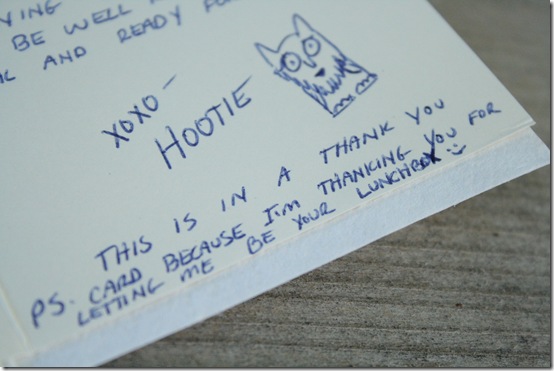 YING
BE WELL
AND READY FO
XOXO-
HOOTIE
THIS IS IN A THANK YOU
PS. CARD BECAUSE I'M THANKING YOU FOR
LETTING ME BE YOUR LUNCHBOX